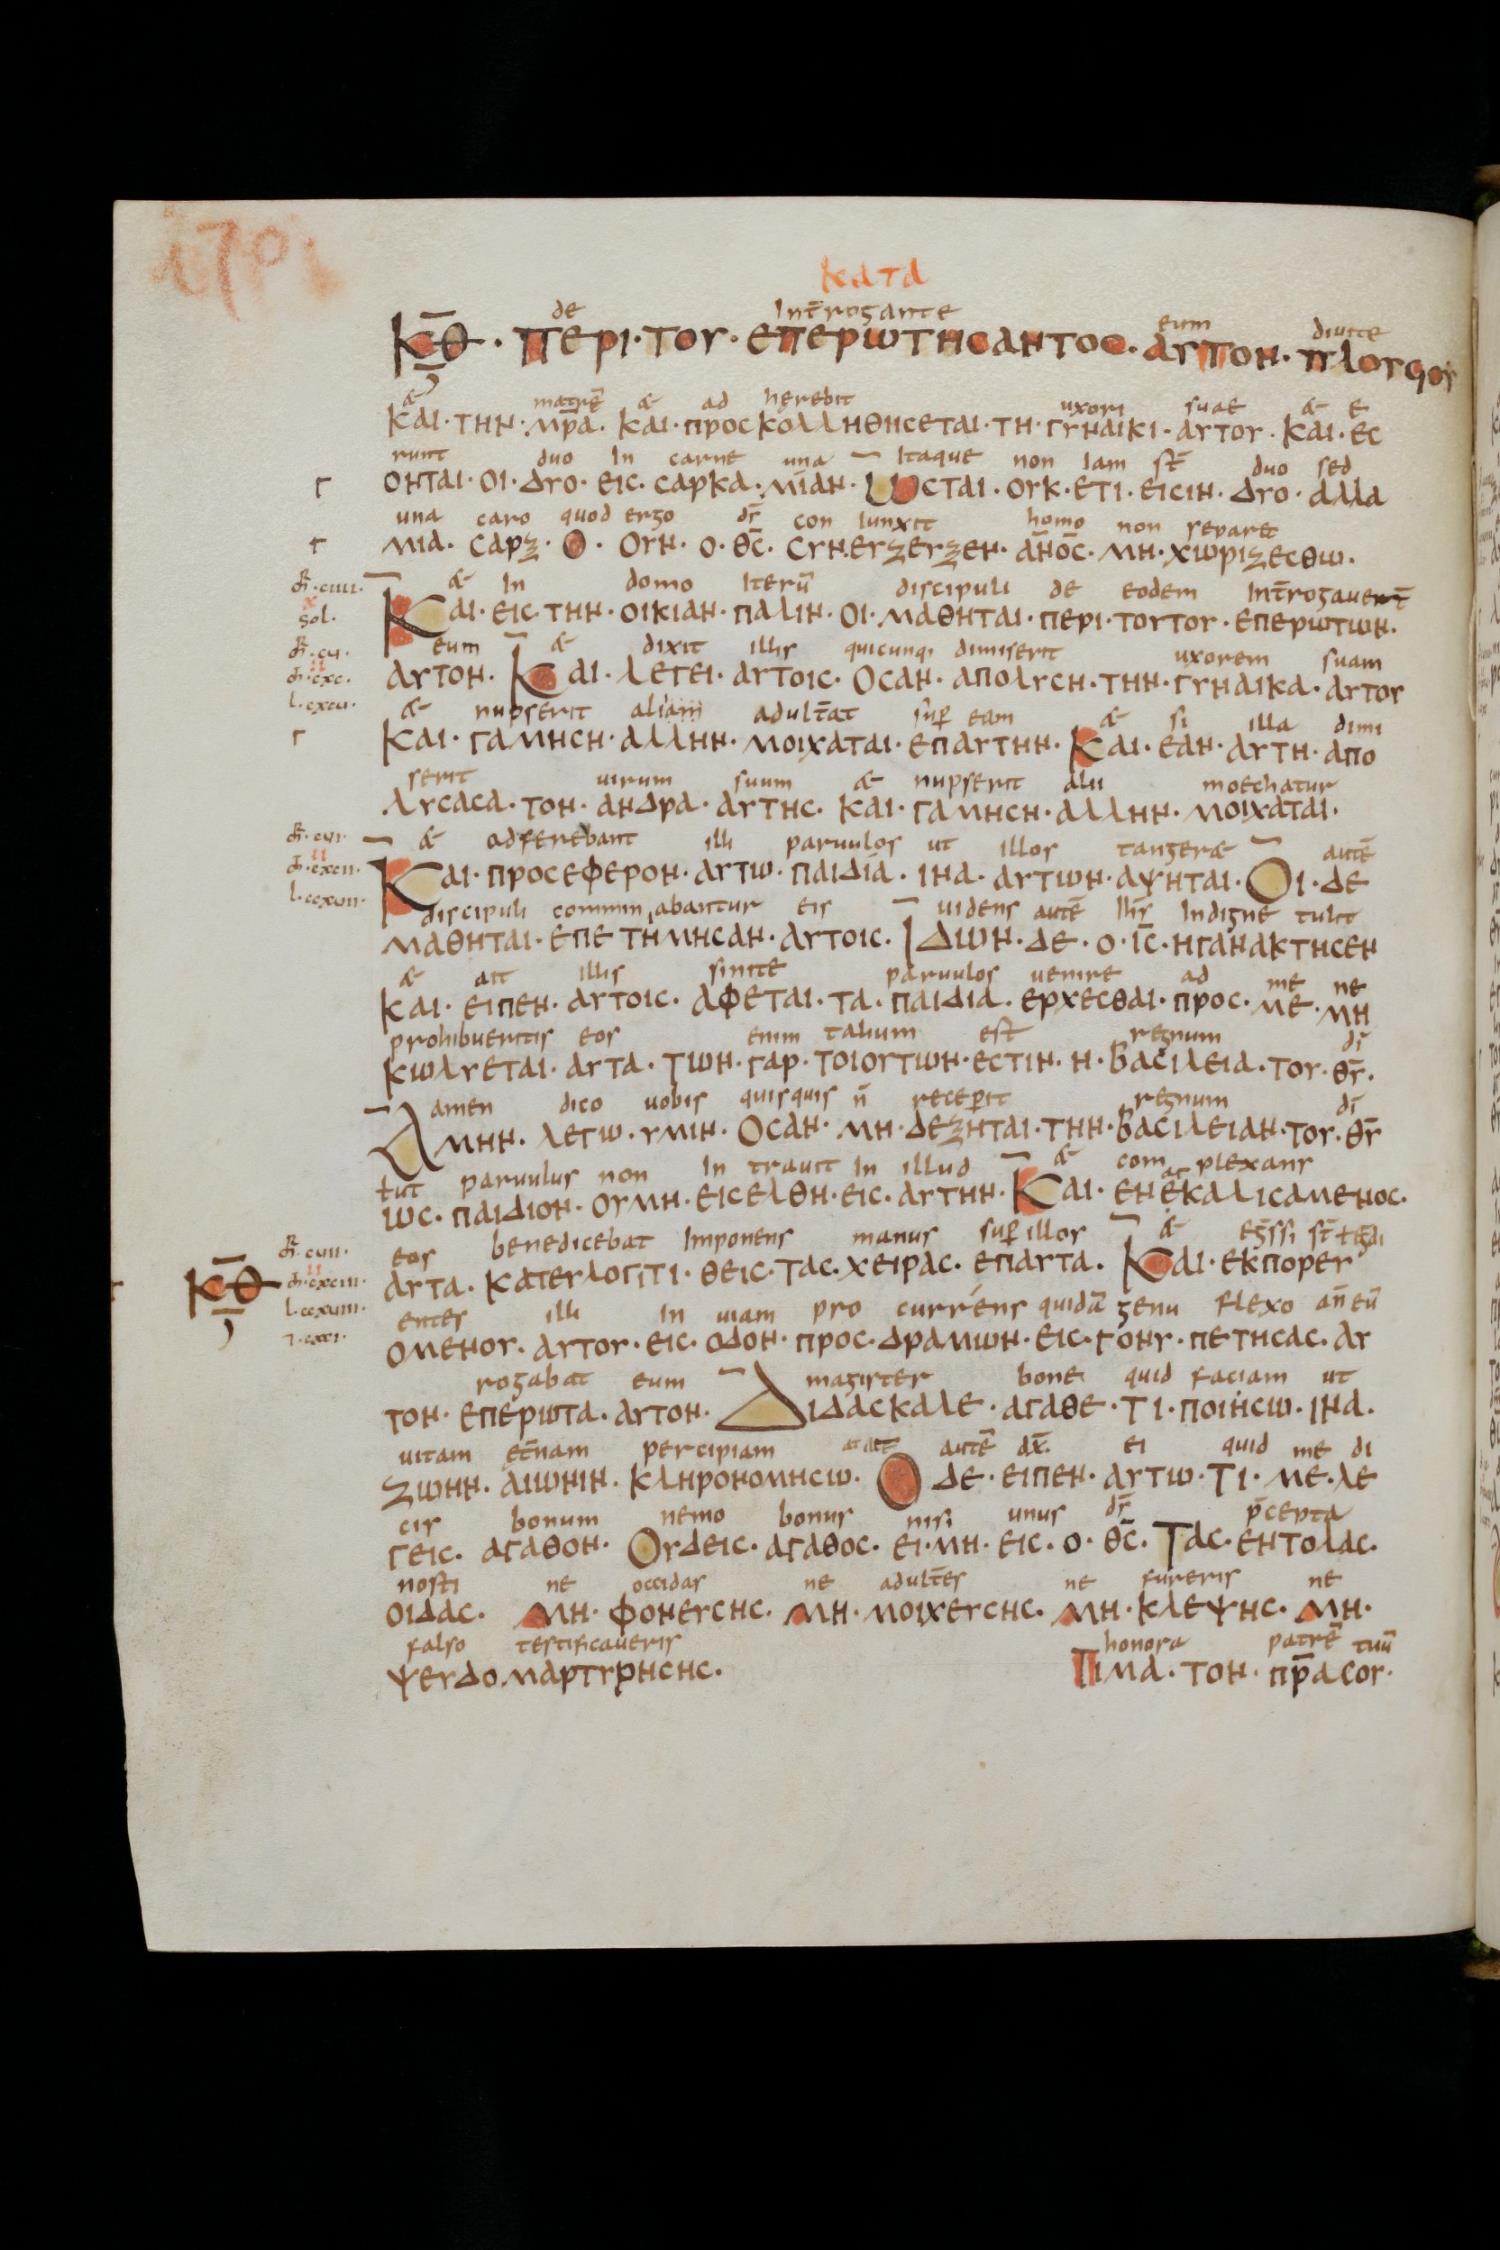 κατα
de Introgante eum diuite
κ̅θ̅ · περι · του · επερωτησαντος · αυτον · πλουσου
& matrē & ad herebit uxori suae & e
και · την · μ̅ρ̅α · και · προσκολληθησεται · τη · γυναικι · αυτου · και · εσ
runt duo In carne una Itaque non Iam st̄ duo sed
ονται · οι · δυο · εις · σαρκα · μιαν · ωσται · ουκ · ετι · εισιν · δυο · αλλα
una caro quod ergo dr̄ con Iunxit homo non separet
μια · σαρξ · ο · ουν · ο · θ̅ς̅ · συν.ευξευξεν · α̅ν̅ο̅ς̅ · μη · χωριζεσθω ·
& In domo Iterū discipuli de eodem Int̄rogauert̄
και · εις την · οικιαν · παλιν · οι · μαθηται · περι · τουτου · επερωτων ·
eum & dixit illis quicunq; dimiserit uxorem suam
αυτον · και · λεγει · αυτοις · οσαν · απολυση · την · γυναικα · αυτου
& nupserit aliam adult̄at sup̄ eam & si illa dimi
και · γαμηση · αλλην · μοιχαται · επαυτην · και · εαν · αυτη · απο
serit uirum suum & nupserit alii moechatur
λυσασα · τον · ανδρα · αυτης · και · γαμηση · αλλην · μοιχαται ·
& adferebant illi paruulos ut illos tanger& autē
και · προσεφερον · αυτω · παιδια · ινα · αυτων · αψηται · οι · δε
discipuli commin,abantur eis uidens autē Ih̄s Indigne tulit
μαθηται · επετημησαν · αυτοις · ιδων · δε · ο · ι̅ς̅ · ηγανακτησεν
& ait illis sinite paruulos uenire ad me ne
και · ειπεν · αυτοις · αφεται · τα · παιδια · ερχεσθαι · προς · με · μη
prohibueritis eos enim talium est regnum dī
κωλυεται · αυτα · των · γαρ · τοιουτων · εστιν · η · βασιλεια · του · θ̅υ̅ ·
amen dico uobis quisquis n̄ recep̄it regnum dī
αμην · λεγω · υμιν · οσαν · μη · δεξηται · την · βασιλειαν · του · θ̅υ̅
ł ut paruulus non In trauit In illud & com plexans
ως · παιδιον · ουμη · εισελθη · εις · αυτην · και · ενεκαλισαμενος ·
eos benedicebat Imponens manus sup̄ illos & eḡssi st̄
αυτα · κατευλογιτι · θεις · τας · χειρας · επαυτα · και · εκπορευ
entes illi In uiam pro currens quidā genu flexo an̄ eū
ομενου · αυτου · εις · οδον · προς · δραμων · εις · γονυ · πετησας · αυ
rogabat eum magister bone quid faciam ut
τον · επερωτα · αυτον · διδασκαλε · αγαθε · τι · ποιησω · ινα ·
uitam et̄nam percipiam autē dx̄ ei quid me di
ζωην · αιωνιν · κληρονομησω · ο δε · ειπεν · αυτω · τι · με · λε
cis bonum nemo bonus nisi unus dr̄ p̄cepta
γεις · αγαθον · ουδεις · αγαθος · ει · μη · εις · ο · θ̅ς̅ · τας · εντολας ·
nosti ne occidas ne adult̄es ne fureris ne
οιδας · μη · φονευσης · μη · μοιχευσης · μη · κλεψης · μη ·
falso testificaueris honora patrē tuū
ψευδομαρτυρησης · τιμα · τον · π̅ρ̅α σου ·
sol.
κ̅θ̅